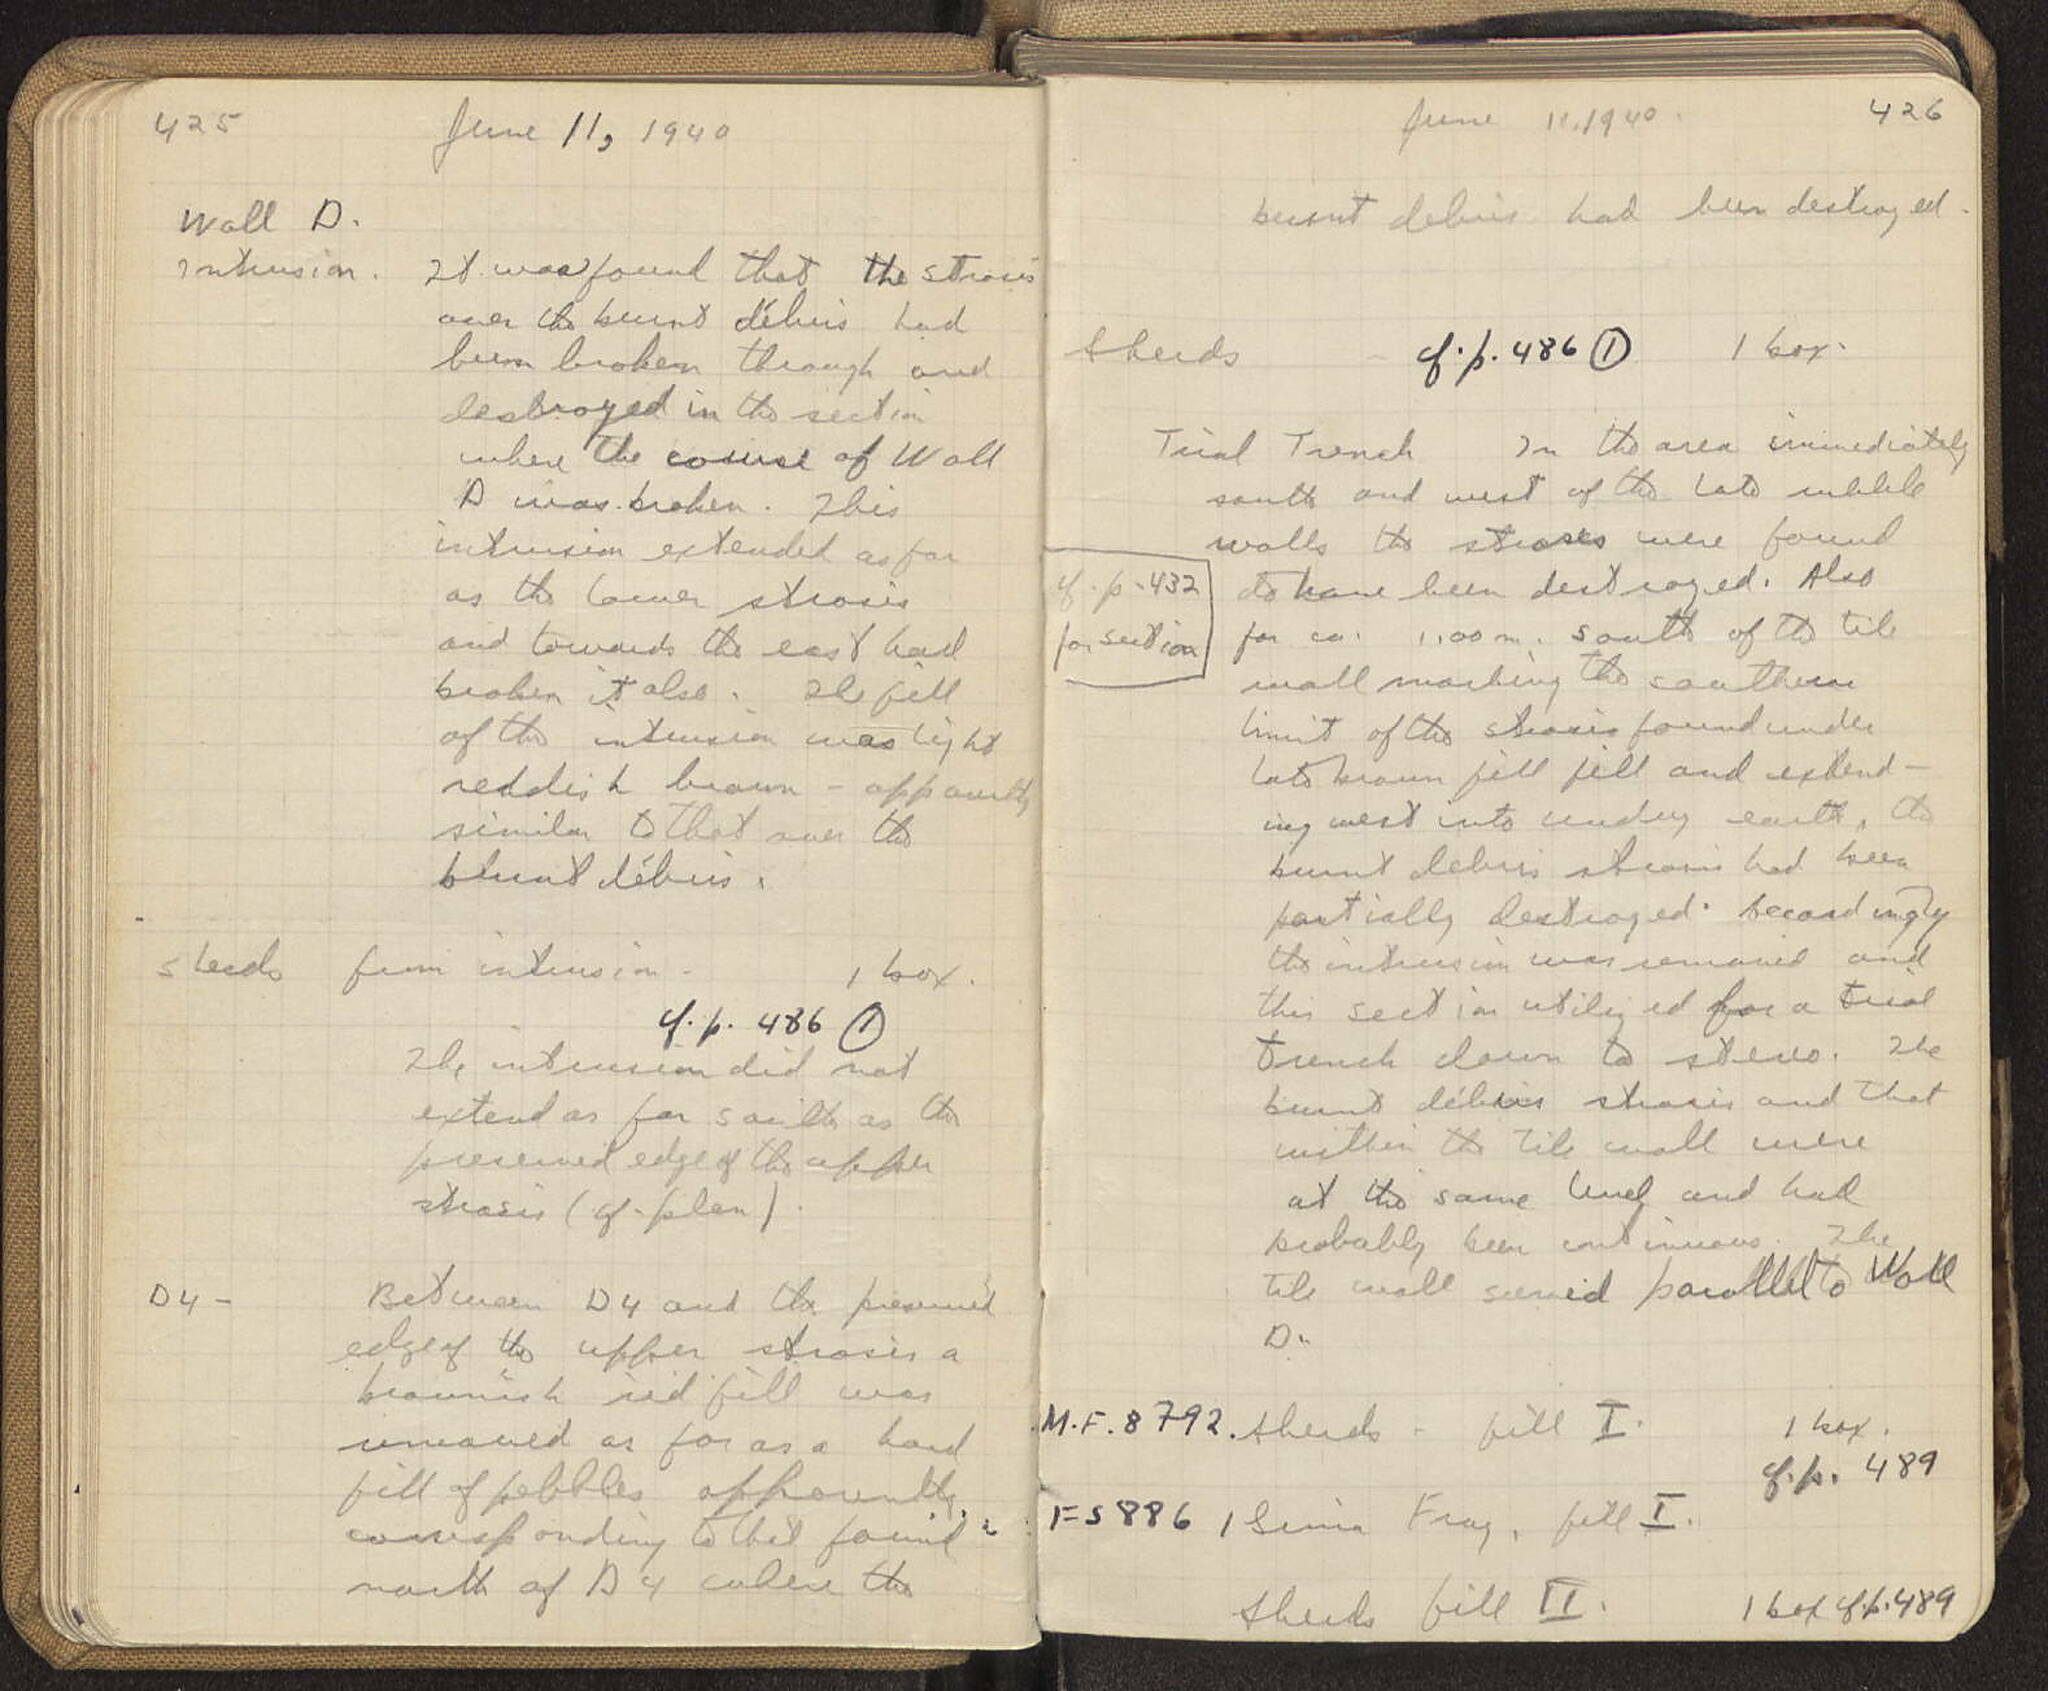 425
June 11, 1940
Wall D.
Intrusion. It was found that the strosis
over the burnt débris had
been broken through and
destroyed in the section
where the course of Wall
D was broken. This
intrusion extended as far
as the lower strosis
and towards the east had
broken it also. The fill
of the intrusion was light
reddish brown - apparently
similar to that over the
burnt débris.
Sherds from intrusion - 1 box.
cf. p. 486 ①
The intrusion did not
extend as far south as the
preserved edge of the upper
strosis (cf. plan).
D4 - Between D4 and the preserved
edge of the upper strosis a
brownish red fill was
removed as far as a hard
fill of pebbles apparently
corresponding to that found
north of D4 where the
426
June 11, 1940.
burnt debris had been destroyed.
Sherds - cf. p. 486 ① 1 box.
Trial Trench In the area immediately
south and west of the late rubble
walls the stroses were found
to have been destroyed. Also
for ca. 1.00 m. south of the tile
wall marking the southern
limit of the strosis found under
late brown fill fill and extend-
ing west into undug earth, the
burnt debris strosis had been
partially destroyed. Accordingly
the intrusion was removed and
this section utilized for a trial
trench down to stereo. The
burnt débris strosis and that
within the tile wall were
at the same level and had
probably been continuous. The
tile wall seemed parallel to Wall
D.
cf. p. 432
for section
M.F. 8792. Sherds - fill I. 1 box.
cf. p. 489
FS 886 1 Sima Frag. fill I.
Sherds fill II. 1 box cf. p. 489